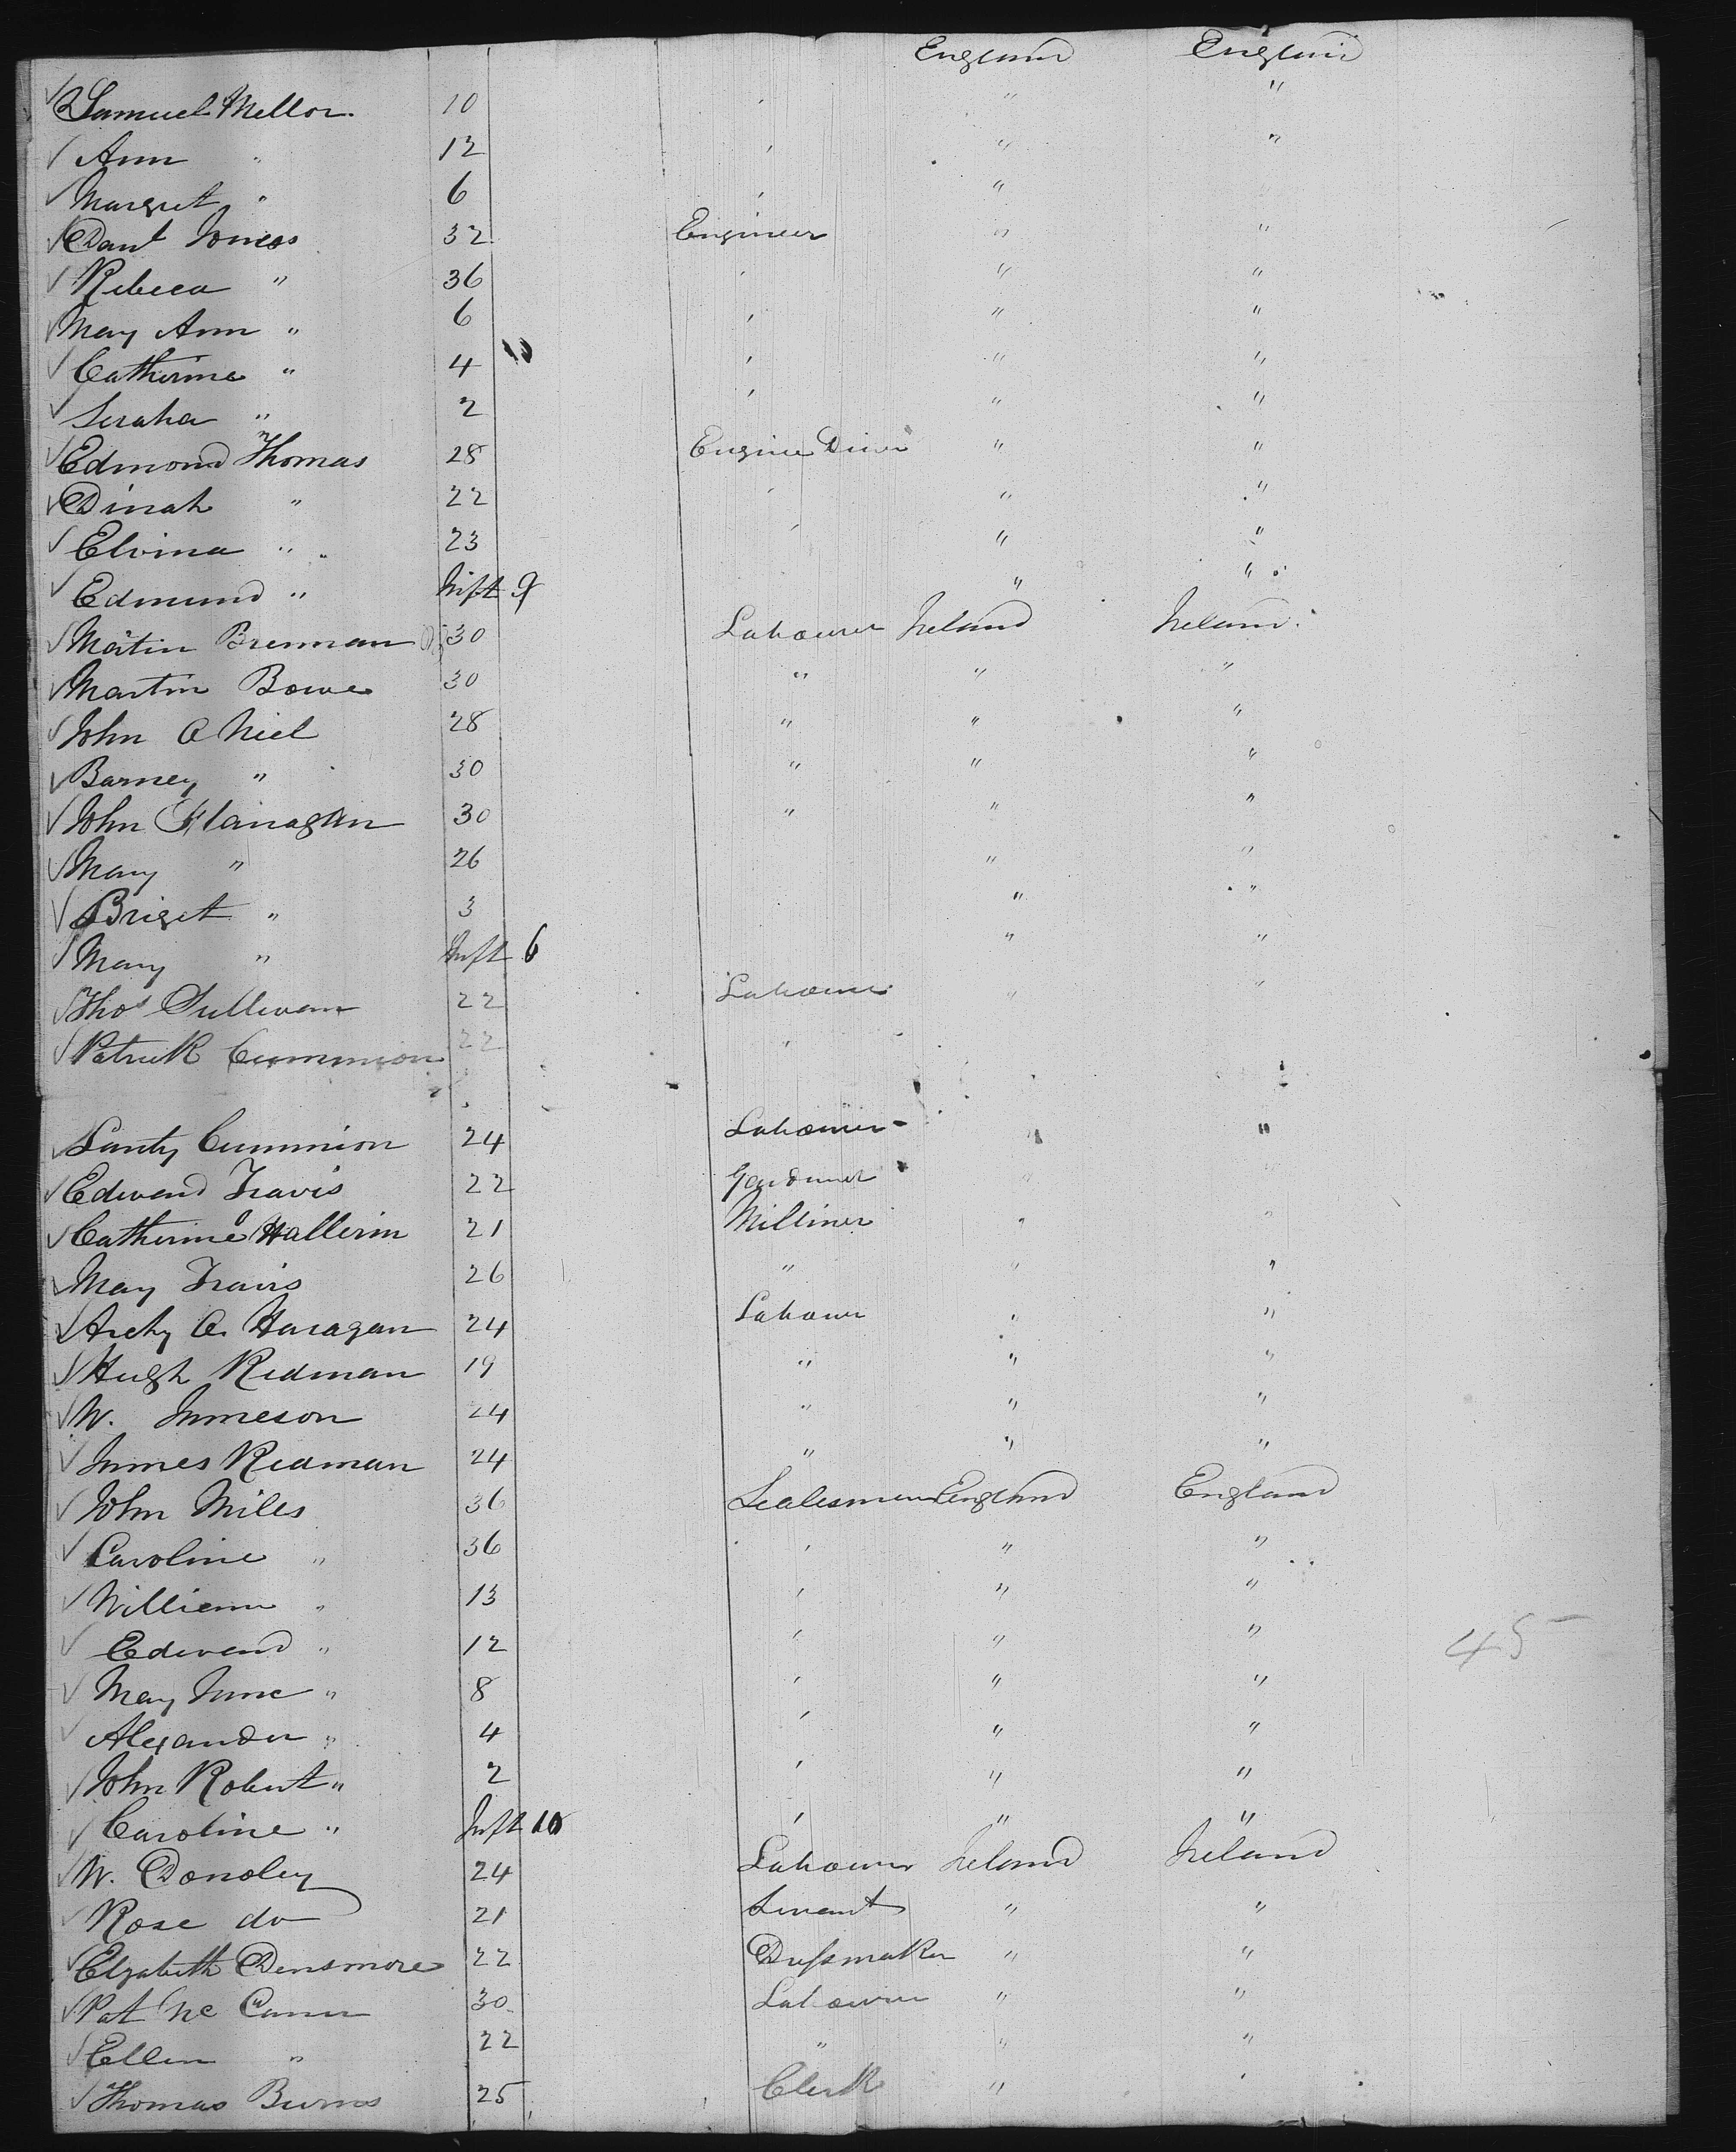 England England
Samuel Mellor. 10 ' " "
Ann " 12 ' " "
Margret " 6 ' "
Danl Jones 32 Engineer " "
Rebeca " 36 ' " "
May Ann " 6 ' " "
Catherine " 4 ' " "
Seraha " 2 ' " "
Edmond Thomas 28 Engine Driver " "
Dinah " 22 ' " "
Elvina " 23 ' " "
Edmund " Inft 9 " "
Martin Brennan 30 Labourer Ireland Ireland.
Martin Bowe 30 " " "
John O Niel 28 " " "
Barney " 30 " " "
John Flanagan 30 " " "
Mary " 26 " "
Briget " 3 " "
Mary " Inft 6 " "
Thos Sullivan 22 Labourer " "
Patrick Cummion 22 '
Lanty Cummion 24 Labourer " "
Edward Travis 22 Gardener "
Catherine O Hallerin 21 Milliner " "
May Travis 26 " " "
Archy O. Haragan 24 Labour " "
Hugh Redman 19 " " "
W. Jameson 24 " " "
James Redman 24 " " "
John Miles 36 Sealesman England England
Caroline " 36 ' " "
William " 13 ' " "
Edward " 12 ' " "
May Jane " 8 ' " "
Alexander " 4 ' " "
John Robert " 2 ' " "
Caroline " Inft 10 ' " "
W. Donoley 24 Labourer Ireland Ireland
Rose do 21 Servant " "
Elzabeth Densmore 22 Dressmaker " "
Pat Mc Cann 30 Labourer " "
Ellen " 22 " " "
Thomas Burns 25 Clerk " '
45